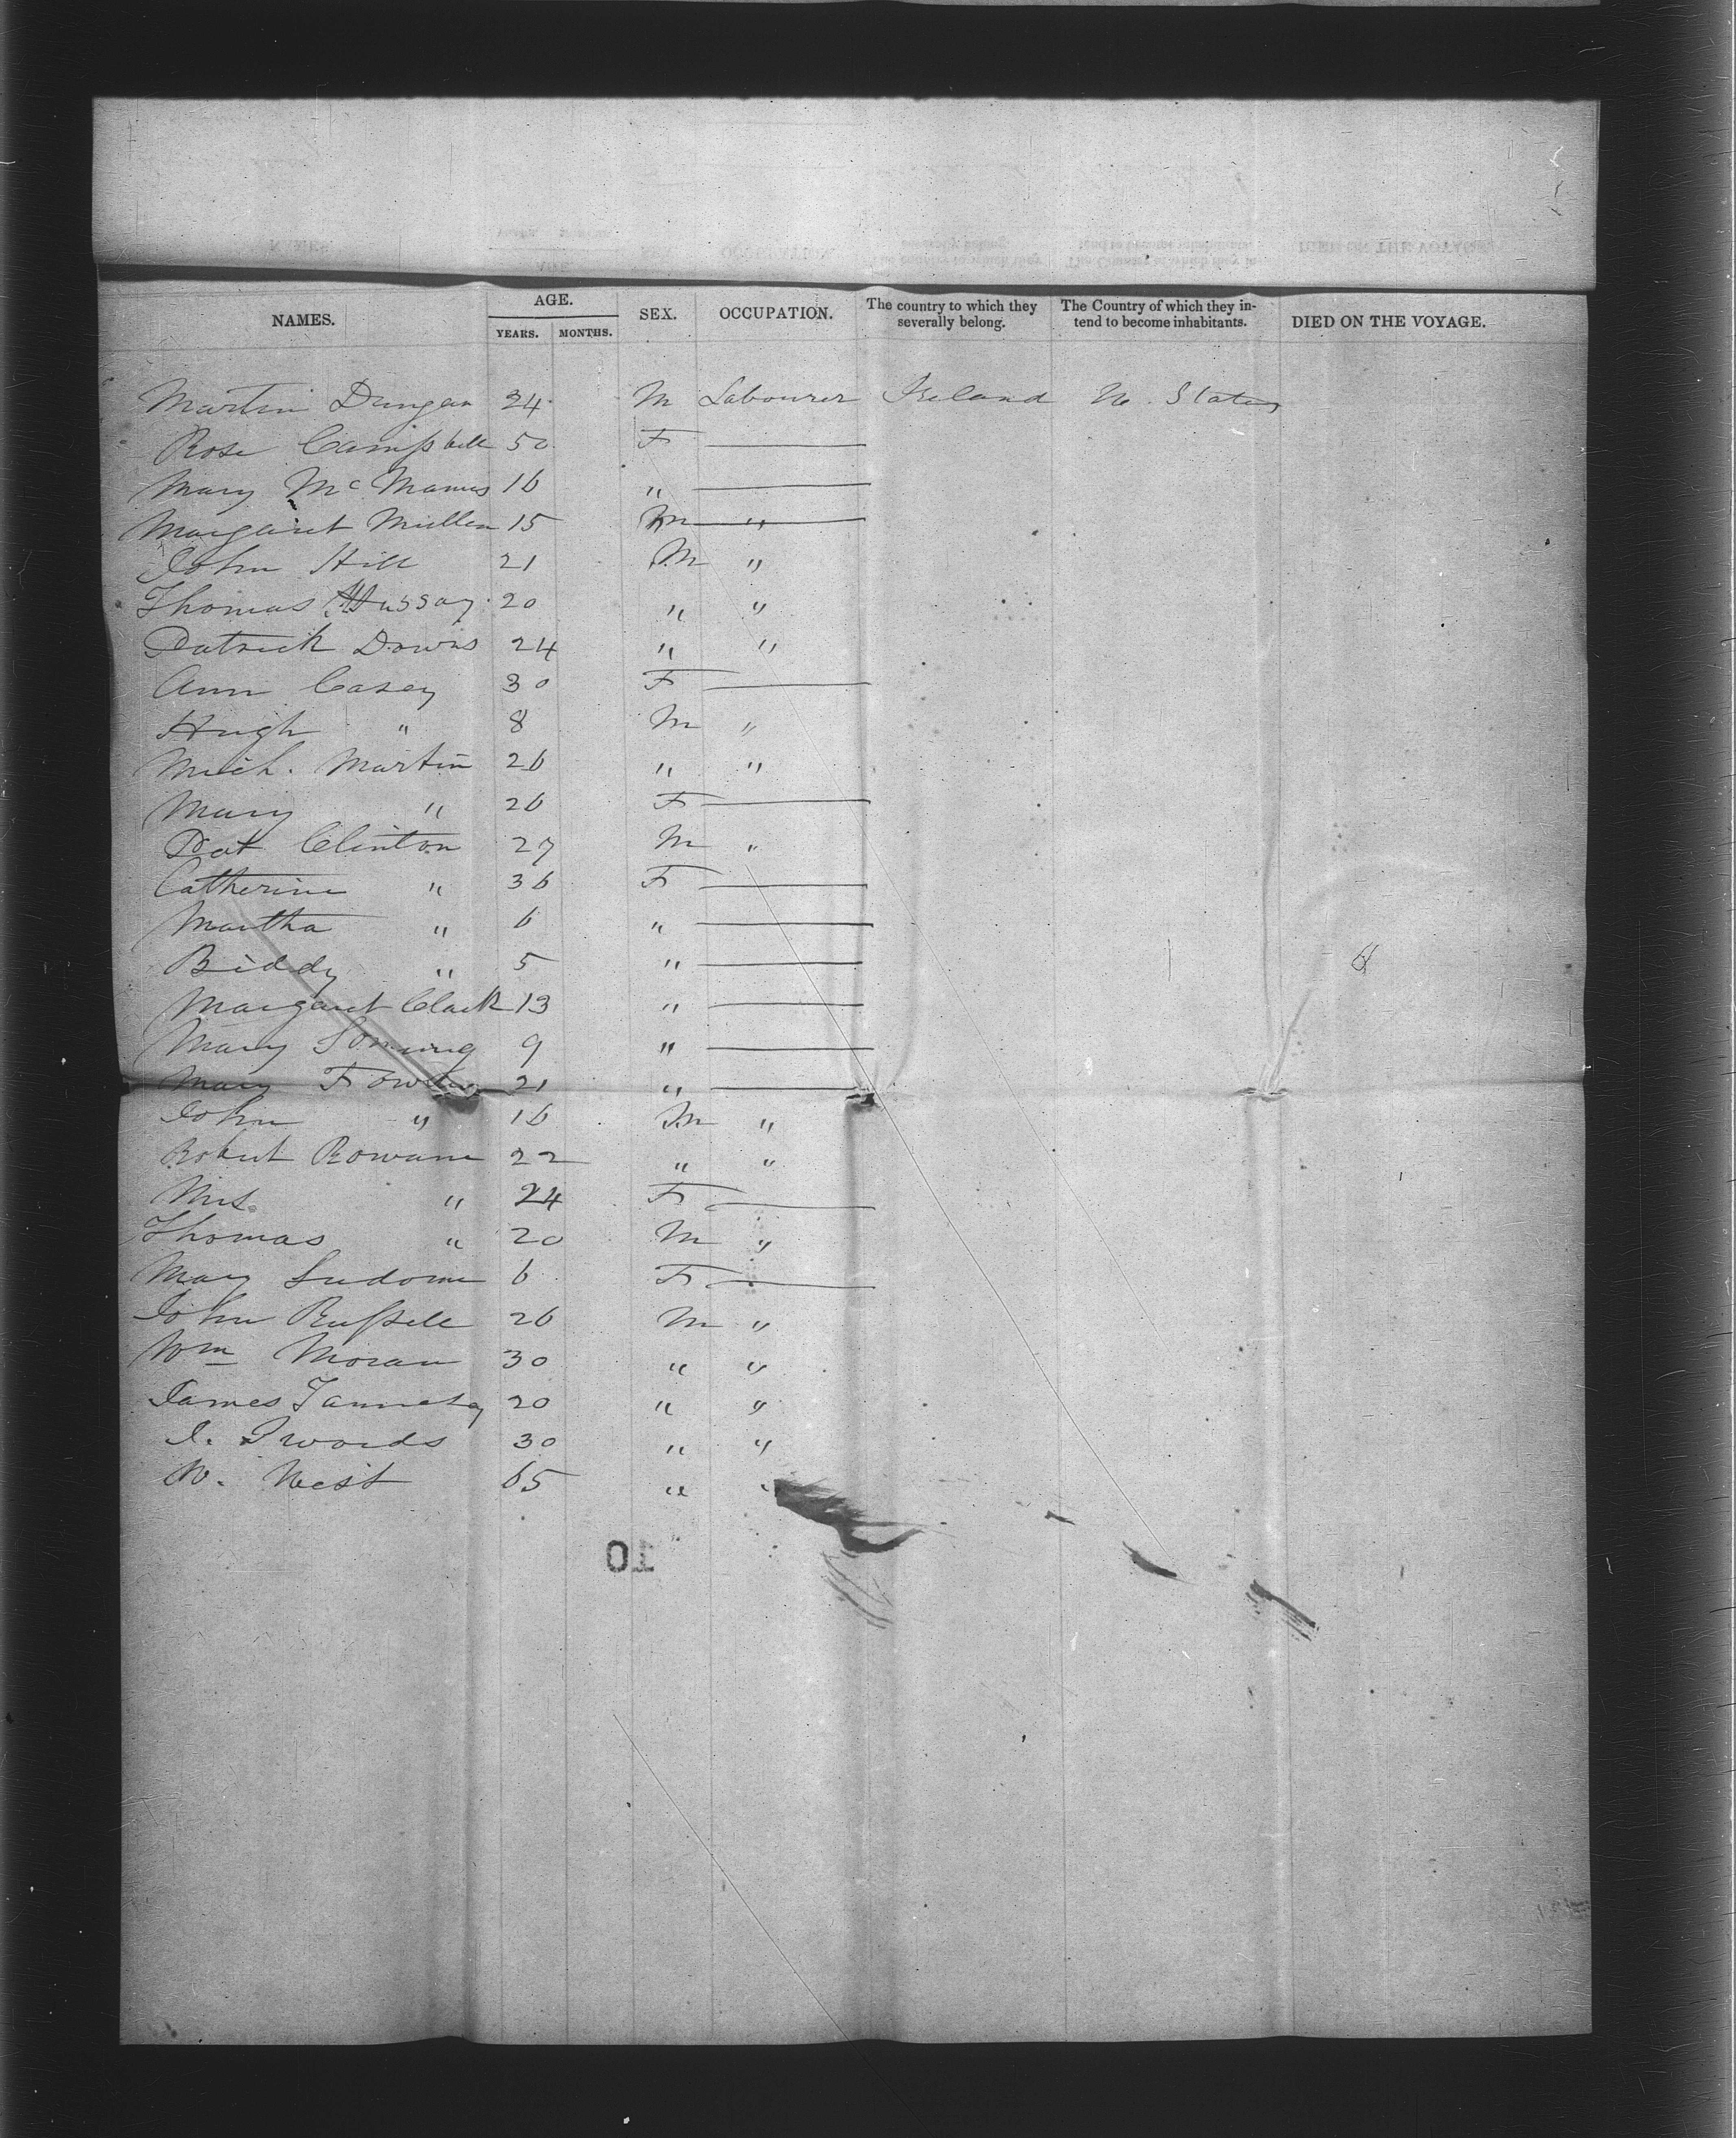 NAMES. AGE. YEARS. MONTHS. SEX. OCCUPATION. The country to which they severally belong. The Country of which they intend to become inhabitants. DIED ON THE VOYAGE.
Martin Dungan 24 M Labourer Ireland U. States
Rose Campbell 50 F
Mary McManus 16 "
Margaret Mullen 15 "
John Hill 21 M "
Thomas Hussay 20 " "
Patrick Downs 24 " "
Ann Casey 30 F
Hugh " 8 M "
Mich. Martin 26 " "
Mary " 26 F
Pat Clinton 27 M "
Catherine " 36 F
Martha " 6 "
Biddy " 5 "
Margaret Clark 13 "
Mary 9 "
Mary 21 "
John " 16 M "
Robert Rowan 22 " "
Mrs. " 24 F
Thomas " 20 M "
Mary 6 F
John Russell 26 M "
Wm Moran 30 " "
James 20 " "
30 " "
W. West 65 " "
10